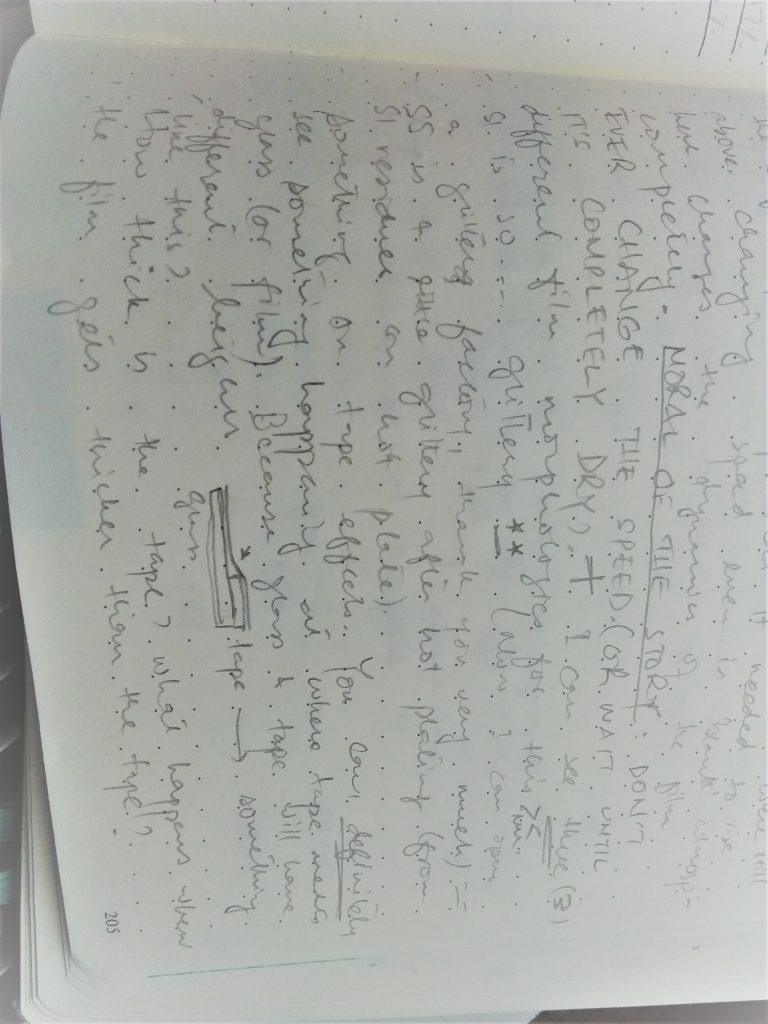 17%
%
the it needed when still
above changing speed even in to rise
here changes the dynamics of the film
completely. MORAL OF THE STORY: DON'T
EVER CHANGE THE SPEED. (OR WAIT UNTIL
IT'S COMPLETELY DRY). + I can see three (3)
different film morphologies for this
- S1 is so.... glittery ** (now I can open
a glittery factory, thank you very much) :-
- S5 is a little glittery after hot plating (from
S1 residues on hot plate).
- Something on tape effects. You can definitely
see something happening at where tape meets
glass (or film). Because glass & tape will have
different heights. tape → something
like this? glass
How thick is the tape? What happens when
the film gets thicker than the tape?
205